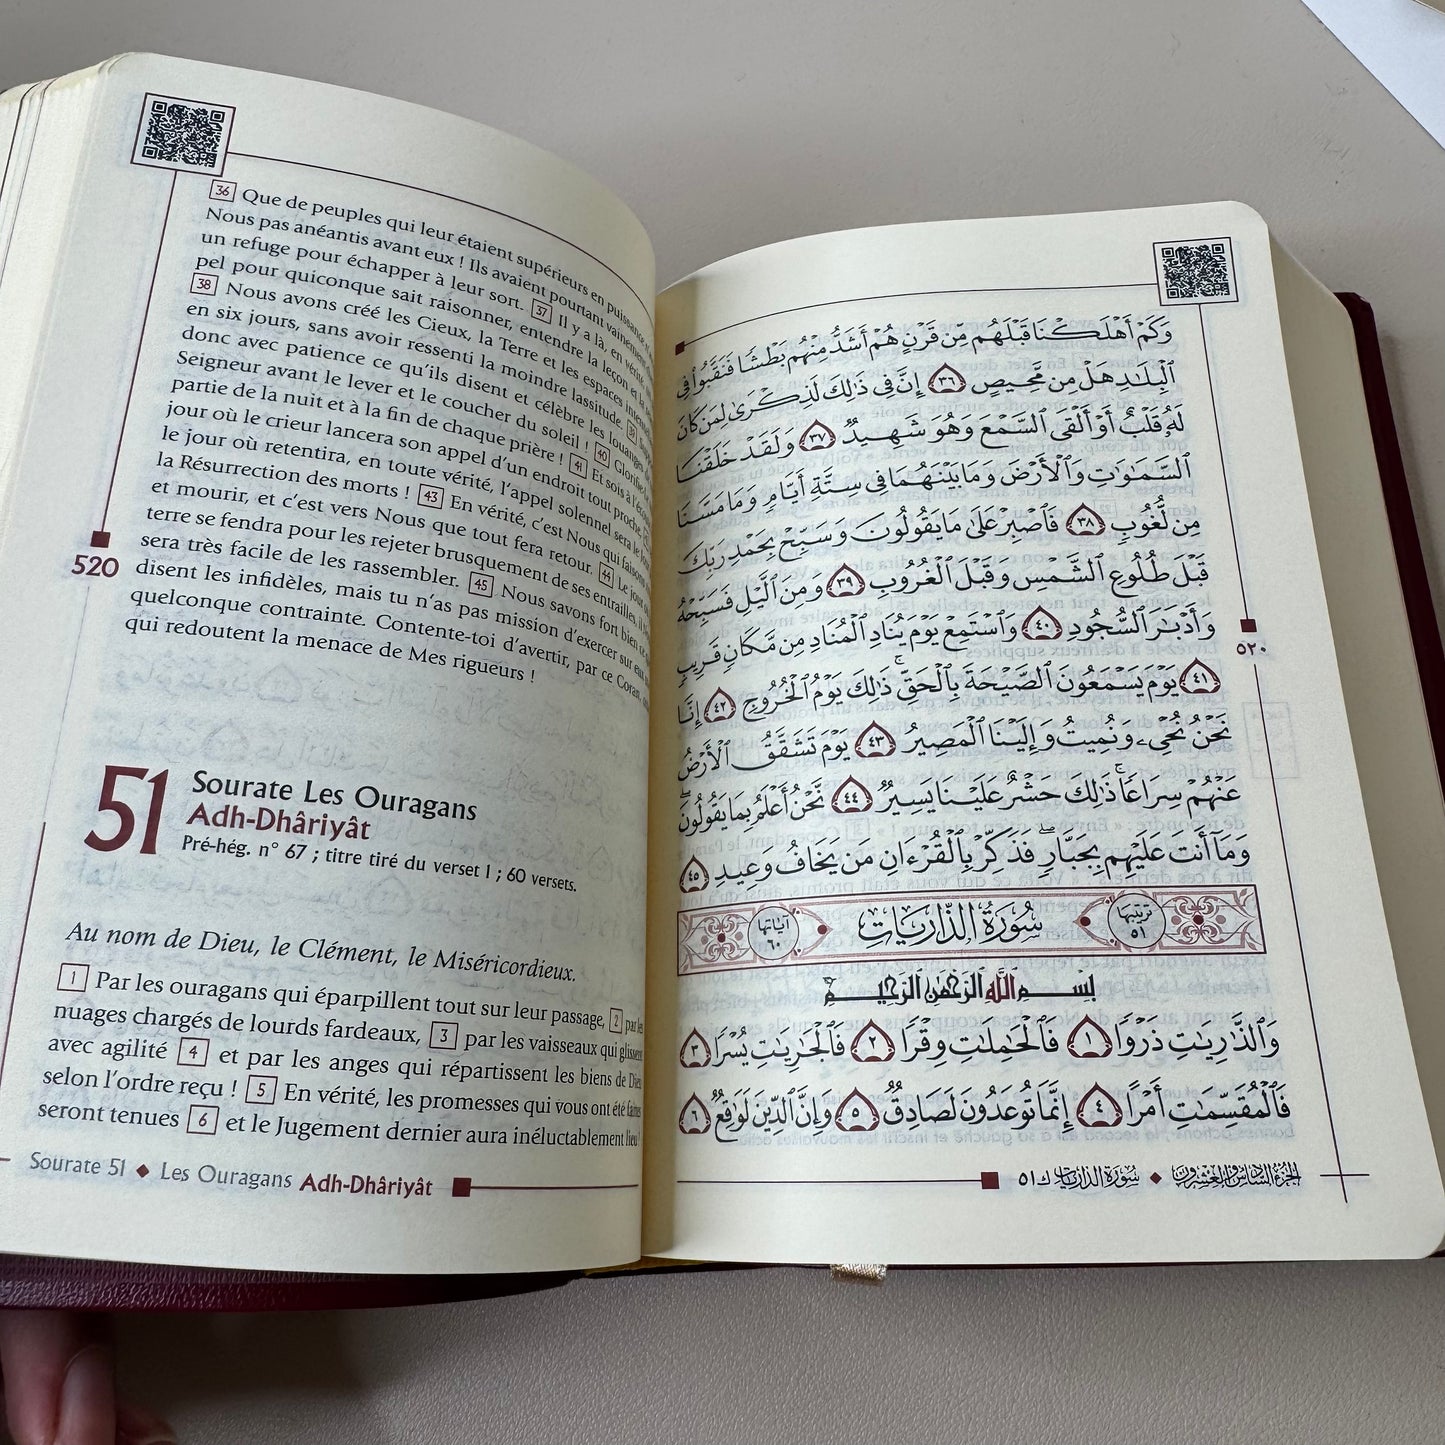 36 Que de peuples qui leur étaient supérieurs en puissance
Nous pas anéantis avant eux ! Ils avaient pourtant vainement
un refuge pour échapper à leur sort. 37 Il y a là, en vérité,
pel pour quiconque sait raisonner, entendre la leçon et la
38 Nous avons créé les Cieux, la Terre et les espaces
en six jours, sans avoir ressenti la moindre lassitude. 39
donc avec patience ce qu'ils disent et célèbre les louanges
Seigneur avant le lever et le coucher du soleil ! 40 Glorifie-Le
partie de la nuit et à la fin de chaque prière ! 41 Et sois à
jour où le crieur lancera son appel d'un endroit tout proche,
le jour où retentira, en toute vérité, l'appel solennel sera le
la Résurrection des morts ! 43 En vérité, c'est Nous qui faisons
et mourir, et c'est vers Nous que tout fera retour. 44 Le jour
terre se fendra pour les rejeter brusquement de ses entrailles, il
sera très facile de les rassembler. 45 Nous savons fort bien ce
disent les infidèles, mais tu n'as pas mission d'exercer sur eux
quelconque contrainte. Contente-toi d'avertir, par ce Coran,
qui redoutent la menace de Mes rigueurs !
520
51
Sourate Les Ouragans
Adh-Dhâriyât
Pré-hég. n° 67 ; titre tiré du verset 1 ; 60 versets.
Au nom de Dieu, le Clément, le Miséricordieux.
1 Par les ouragans qui éparpillent tout sur leur passage, 2 par les
nuages chargés de lourds fardeaux, 3 par les vaisseaux qui glissent
avec agilité 4 et par les anges qui répartissent les biens de Dieu
selon l'ordre reçu ! 5 En vérité, les promesses qui vous ont été faites
seront tenues 6 et le Jugement dernier aura inéluctablement lieu !
Sourate 51 ◆ Les Ouragans Adh-Dhâriyât
وَكَمْ أَهْلَكْنَا قَبْلَهُم مِّن قَرْنٍ هُمْ أَشَدُّ مِنْهُم بَطْشًا فَنَقَّبُوا۟ فِى
ٱلْبِلَـٰدِ هَلْ مِن مَّحِيصٍ ٣٦ إِنَّ فِى ذَٰلِكَ لَذِكْرَىٰ لِمَن كَانَ
لَهُۥ قَلْبٌ أَوْ أَلْقَى ٱلسَّمْعَ وَهُوَ شَهِيدٌ ٣٧ وَلَقَدْ خَلَقْنَا
ٱلسَّمَـٰوَٰتِ وَٱلْأَرْضَ وَمَا بَيْنَهُمَا فِى سِتَّةِ أَيَّامٍ وَمَا مَسَّنَا
مِن لُّغُوبٍ ٣٨ فَٱصْبِرْ عَلَىٰ مَا يَقُولُونَ وَسَبِّحْ بِحَمْدِ رَبِّكَ
قَبْلَ طُلُوعِ ٱلشَّمْسِ وَقَبْلَ ٱلْغُرُوبِ ٣٩ وَمِنَ ٱلَّيْلِ فَسَبِّحْهُ
وَأَدْبَـٰرَ ٱلسُّجُودِ ٤٠ وَٱسْتَمِعْ يَوْمَ يُنَادِ ٱلْمُنَادِ مِن مَّكَانٍ قَرِيبٍ
٤١ يَوْمَ يَسْمَعُونَ ٱلصَّيْحَةَ بِٱلْحَقِّ ۚ ذَٰلِكَ يَوْمُ ٱلْخُرُوجِ ٤٢ إِنَّا
نَحْنُ نُحْىِۦ وَنُمِيتُ وَإِلَيْنَا ٱلْمَصِيرُ ٤٣ يَوْمَ تَشَقَّقُ ٱلْأَرْضُ
عَنْهُمْ سِرَاعًا ۚ ذَٰلِكَ حَشْرٌ عَلَيْنَا يَسِيرٌ ٤٤ نَّحْنُ أَعْلَمُ بِمَا يَقُولُونَ ۖ
وَمَآ أَنتَ عَلَيْهِم بِجَبَّارٍ ۖ فَذَكِّرْ بِٱلْقُرْءَانِ مَن يَخَافُ وَعِيدِ ٤٥
٥٢٠
ترتيبها ٥١ سُورَةُ الذَّارِيَاتِ آياتها ٦٠
بِسْمِ ٱللَّهِ ٱلرَّحْمَـٰنِ ٱلرَّحِيمِ
وَٱلذَّٰرِيَـٰتِ ذَرْوًا ١ فَٱلْحَـٰمِلَـٰتِ وِقْرًا ٢ فَٱلْجَـٰرِيَـٰتِ يُسْرًا ٣
فَٱلْمُقَسِّمَـٰتِ أَمْرًا ٤ إِنَّمَا تُوعَدُونَ لَصَادِقٌ ٥ وَإِنَّ ٱلدِّينَ لَوَٰقِعٌ ٦
الجزء السادس والعشرون ◆ سورة الذاريات ك ٥١